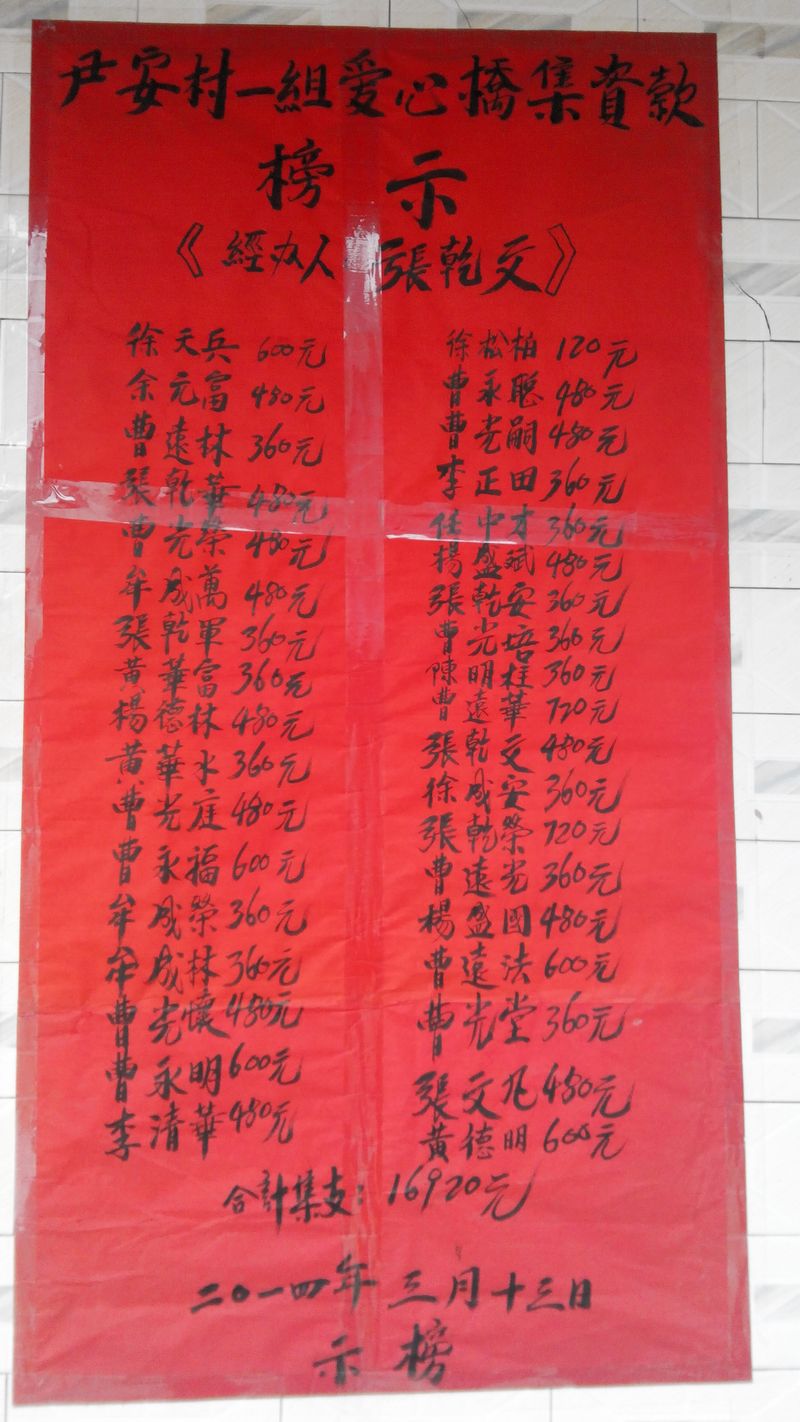 尹安村一組爱心橋集資款
榜示
《經办人 張乾文》
徐天兵 600元
余元富 480元
曹遠林 360元
張乾華 480元
曹光榮 480元
牟成萬 480元
張乾軍 360元
黄華富 360元
楊德林 480元
黄華水 360元
曹光庭 480元
曹永福 600元
牟成榮 360元
牟成林 360元
曹光懷 480元
曹永明 600元
李清華 480元
徐松柏 120元
曹永聰 480元
曹光嗣 480元
李正田 360元
任中才 360元
楊盛斌 480元
張乾安 360元
曹光培 360元
陳明柱 360元
曹遠華 720元
張乾文 480元
徐成安 360元
張乾榮 720元
曹遠光 360元
楊盛國 480元
曹遠法 600元
曹光堂 360元
張文凡 480元
黄德明 600元
合計集支：16920元
二〇一四年三月十三日
示榜